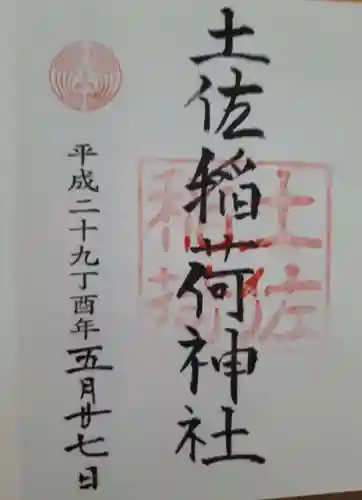 土佐稲荷神社
土佐
稲荷
平成二十九丁酉年五月廿七日